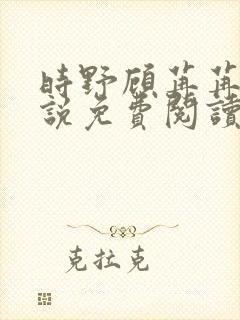 時野顧苒苒
說免費閱讀
克拉克